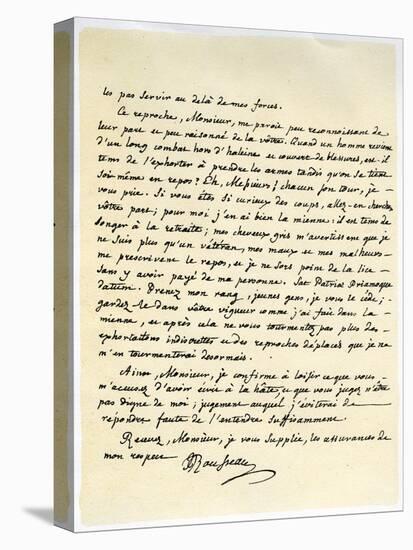 les pas servir au delà de mes forces.
Ce reproche, Monsieur, me paroit peu reconnoissant de
leur part et peu raisonné de la vôtre. Quand un homme revient
d'un long combat hors d'haleine et couvert de blessures, est-il
tems de l'exhorter à prendre les armes tandis qu'on se tient
soi-même en repos? Eh, Messieurs! chacun son tour, je
vous prie. Si vous êtes si curieux des coups, allez-en chercher
vôtre part; pour moi j'en ai bien la mienne: il est tems de
songer à la retraite; mes cheveux gris m'avertissent que je
ne suis plus qu'un vétéran, mes maux et mes malheurs
me prescrivent le repos, et je ne sors point de la lice
sans y avoir payé de ma personne. Sat Patriæ Priamoque
datum. Prenez mon rang, jeunes gens, je vous le cède;
gardez-le dans vôtre vigueur comme j'ai fait dans la
mienne, et après cela ne vous tourmentez pas plus des
exhortations indiscrettes et des reproches déplacés que je ne
m'en tourmenterai désormais.
Ainsi, Monsieur, je confirme à loisir ce que vous
m'accusez d'avoir écrit à la hâte, ce que vous jugez n'être
pas digne de moi; jugement auquel j'éviterai de
répondre faute de l'entendre suffisamment.
Recevez, Monsieur, je vous supplie, les assurances de
mon respect
JJRousseau